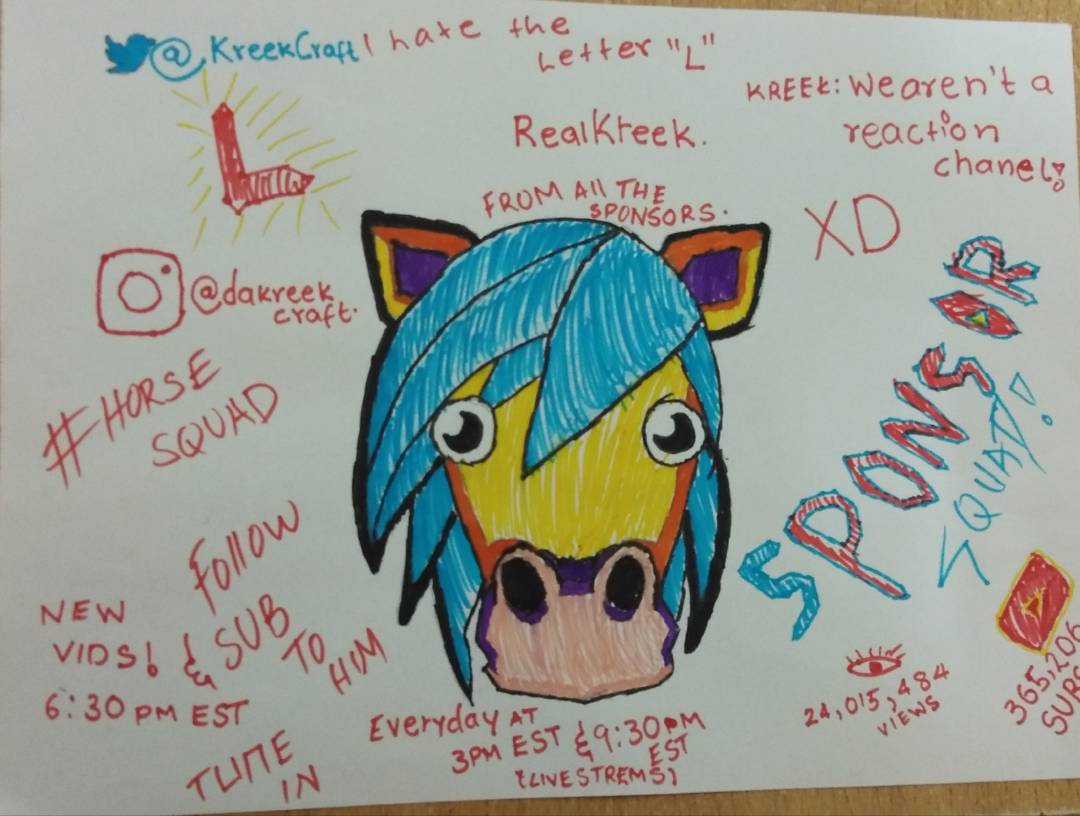 @KreekCraft
I hate the
Letter "L"
KREEK: We aren't a
reaction
chanel!
RealKreek.
FROM All THE
SPONSORS.
XD
L
@dakreek
craft.
#HORSE
SQUAD
SPONSOR
SQUAD!
Follow
& SUB
TO
HIM
NEW
VIDS!
6:30 PM EST
TUNE
IN
Everyday AT
3PM EST & 9:30PM
EST
{LIVESTREMS}
24,015,484
VIEWS
365,206
SUBS